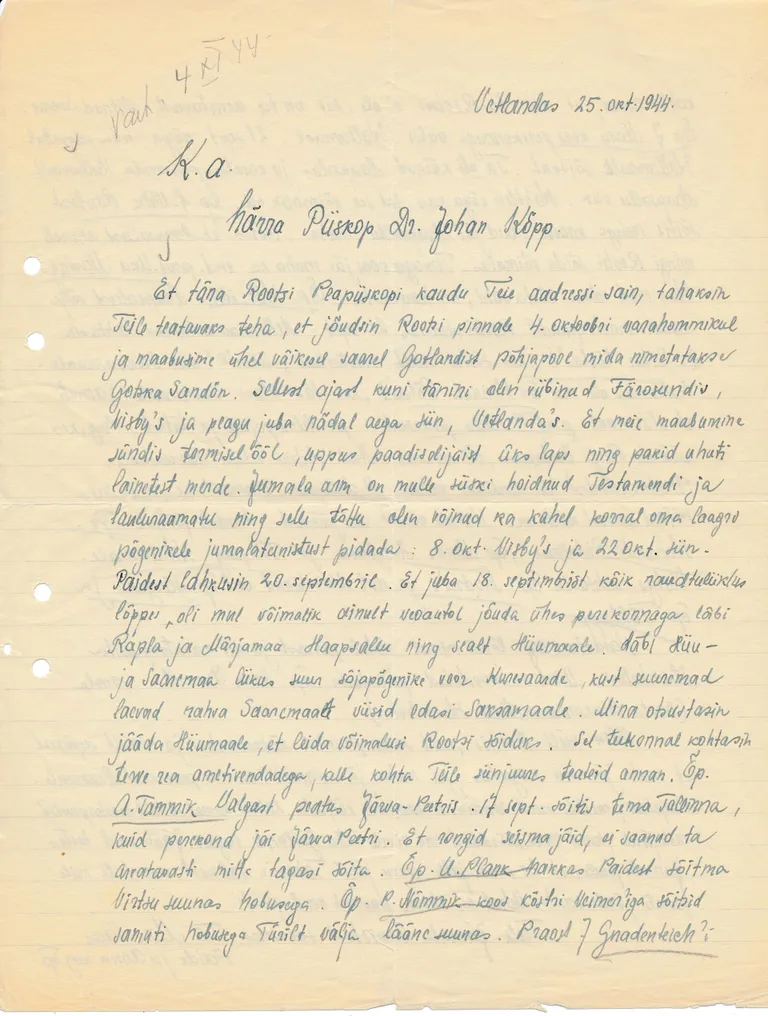 Vast. 4 XI 44.
Vetlandas 25. okt. 1944.
K. a.
härra Piiskop Dr. Johan Kõpp.
Et täna Rootsi Peapiiskopi kaudu Teie aadressi sain, tahaksin
Teile teatavaks teha, et jõudsin Rootsi pinnale 4. oktoobri varahommikul
ja maabusime ühel väikesel saarel Gotlandist põhjapool mida nimetatakse
Gotska Sandön. Sellest ajast kuni tänini olen viibinud Fårösundis,
Visby's ja peagu juba nädal aega siin, Vetlanda's. Et meie maabumine
sündis tormisel ööl, uppus paadisolijaist üks laps ning pakid uhuti
lainetest merde. Jumala arm on mulle siiski hoidnud Testamendi ja
lauluraamatu ning selle tõttu olen võinud ka kahel korral oma laagri
põgenikele jumalateenistust pidada: 8. okt. Visby's ja 22 okt. siin.
Paidest lahkusin 20. septembril. Et juba 18. septembrist kõik raudteeliiklus
lõppes, oli mul võimalik ainult veoautol jõuda ühes perekonnaga läbi
Rapla ja Märjamaa Haapsallu ning sealt Hiiumaale. Läbi Hiiu-
ja Saaremaa liikus suur sõjapõgenike voor Kuresaarde, kust suuremad
laevad rahva Saaremaalt viisid edasi Saksamaale. Mina otsustasin
jääda Hiiumaale, et leida võimalusi Rootsi sõiduks. Sel teekonnal kohtasin
terve rea ametivendadega, kelle kohta Teile siinjuures teateid annan. Õp.
A. Tammik Valgast peatus Järva-Peetris. 17 sept. sõitis tema Tallinna,
kuid perekond jäi Järva Peetri. Et rongid seisma jäid, ei saanud ta
arvatavasti mitte tagasi sõita. Õp. U. Plank hakkas Paidest sõitma
Virtsu suunas hobusega. Õp. P. Nõmmik koos köstri Veimer'iga sõitsid
samuti hobusega Türilt välja lääne suunas. Praost J Gnadenteich'i